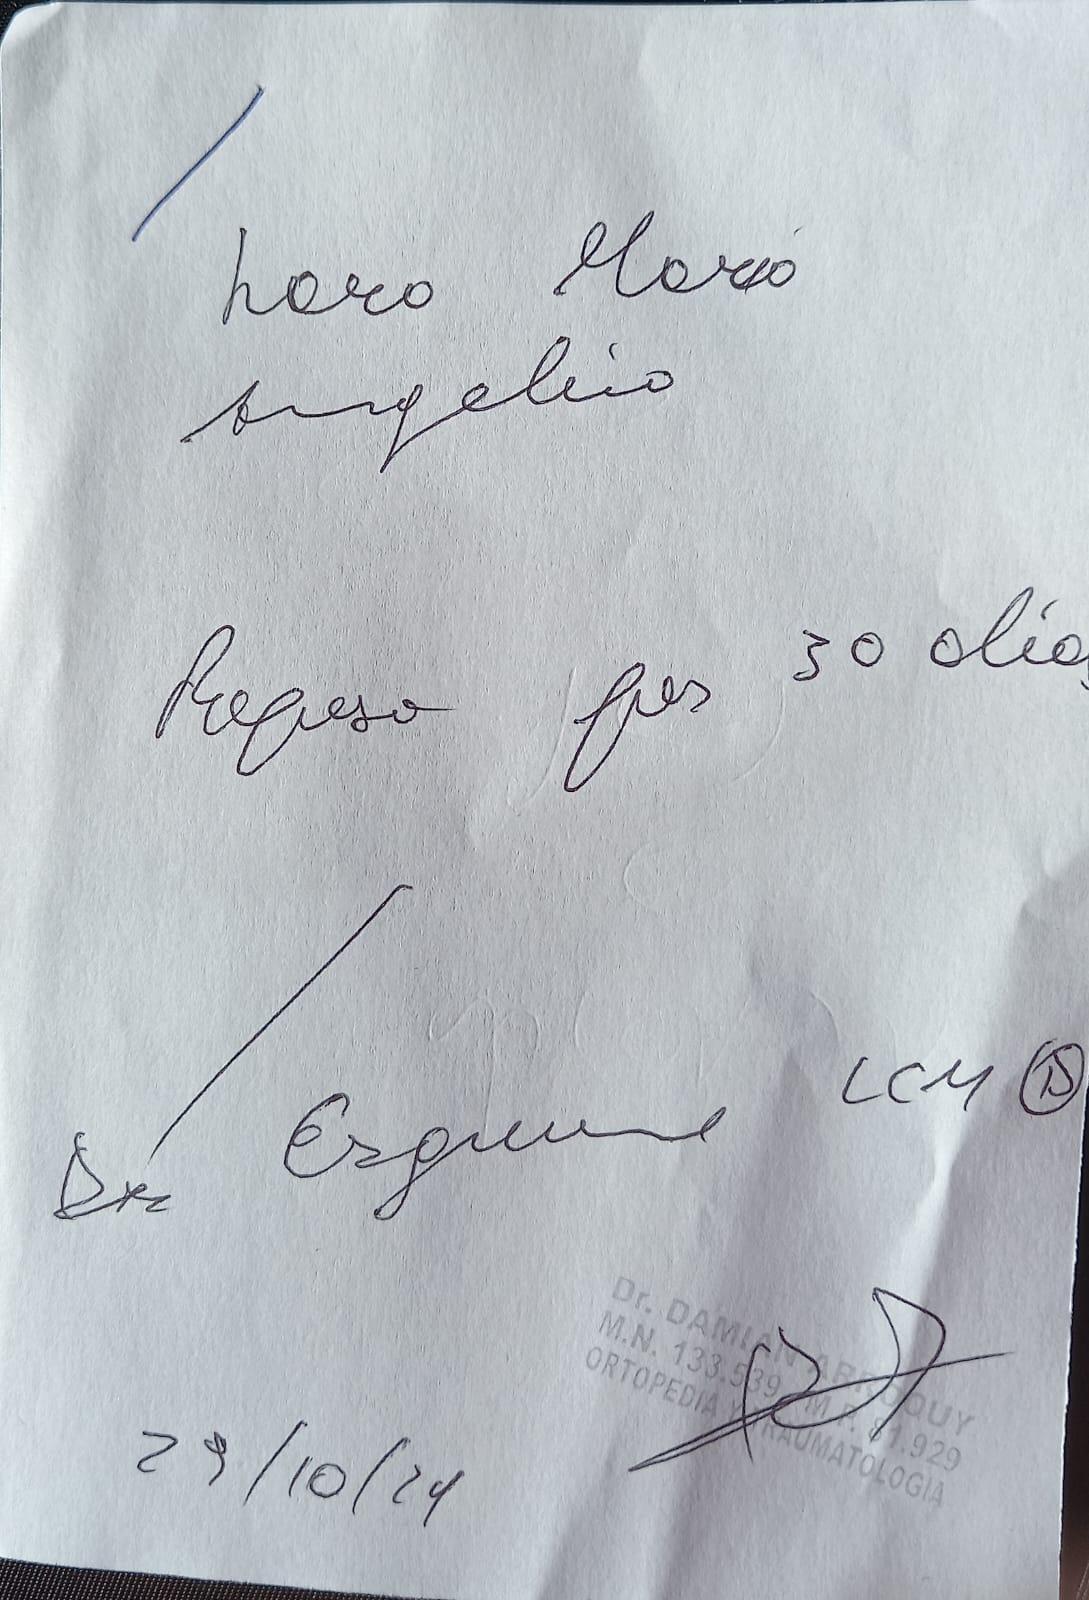 Lara María
Angelica
Reposo por 30 días
Dx Esguince LCM D
Dr. DAMIAN ARROQUY
M.N. 133.539 M.P. 81.929
ORTOPEDIA Y TRAUMATOLOGIA
29/10/24